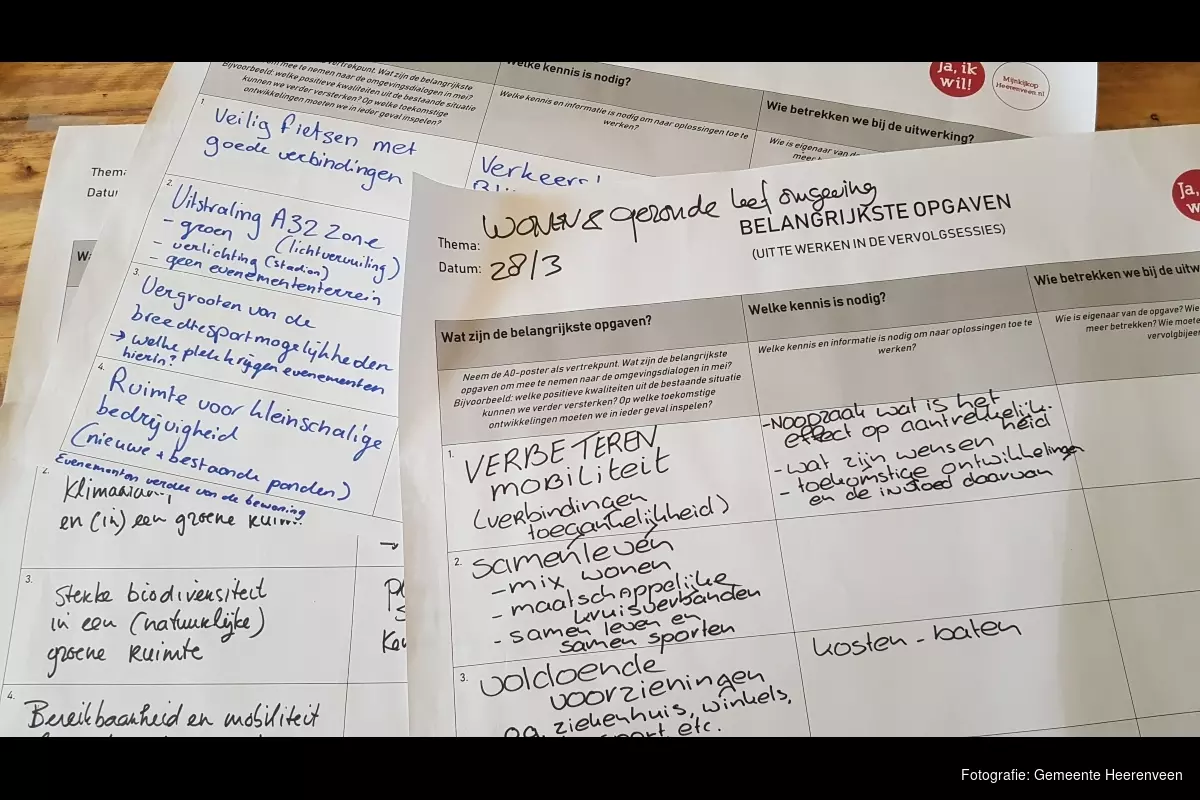 om mee te nemen naar de omgevingsdialogen in mei?
vertrekpunt. Wat zijn de belangrijkste
Bijvoorbeeld: welke positieve kwaliteiten uit de bestaande situatie
kunnen we verder versterken? Op welke toekomstige
ontwikkelingen moeten we in ieder geval inspelen?
Welke kennis is nodig?
Welke kennis en informatie is nodig om naar oplossingen toe te
werken?
Wie betrekken we bij de uitwerking?
Wie is eigenaar van de
Ja, ik
wil!
Mijnkijkop
Heerenveen.nl
1.
Veilig fietsen met
goede verbindingen
Verkeers
2.
Uitstraling A32 zone
- groen (lichtvervuiling)
- verlichting (stadion)
- geen evenemententerrein
3.
Vergroten van de
breedtesportmogelijkheden
→ welke plek krijgen evenementen
hierin?
4.
Ruimte voor kleinschalige
bedrijvigheid
(nieuwe + bestaande panden)
Evenementen verder van de bewoning
Thema:
Datum
2.
en (in) een groene ruim
3.
sterke biodiversiteit
in een (natuurlijke)
groene ruimte
4.
Bereikbaarheid en mobiliteit
Thema: WONEN & gezonde leef omgeving
Datum: 28/3
BELANGRIJKSTE OPGAVEN
(UIT TE WERKEN IN DE VERVOLGSESSIES)
Ja,
Wat zijn de belangrijkste opgaven?
Welke kennis is nodig?
Wie betrekken we bij de uitw
Neem de A0-poster als vertrekpunt. Wat zijn de belangrijkste
opgaven om mee te nemen naar de omgevingsdialogen in mei?
Bijvoorbeeld: welke positieve kwaliteiten uit de bestaande situatie
kunnen we verder versterken? Op welke toekomstige
ontwikkelingen moeten we in ieder geval inspelen?
Welke kennis en informatie is nodig om naar oplossingen toe te
werken?
Wie is eigenaar van de opgave? Wie
meer betrekken? Wie moete
vervolgbijeen
1.
VERBETEREN
MOBILITEIT
(verbindingen
toegankelijkheid)
- NOODZAAK wat is het
effect op aantrekkelijk-
heid
- wat zijn wensen
- toekomstige ontwikkelingen
en de invloed daarvan
2.
samen leven
- mix wonen
- maatschappelijke
kruisverbanden
- samen leven en
samen sporten
3.
voldoende
voorzieningen
o.a. ziekenhuis, winkels,
sport etc.
kosten - baten
Fotografie: Gemeente Heerenveen